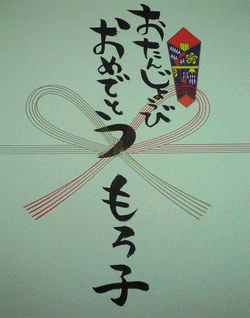 おたんじょうび
おめでとう
もろ子